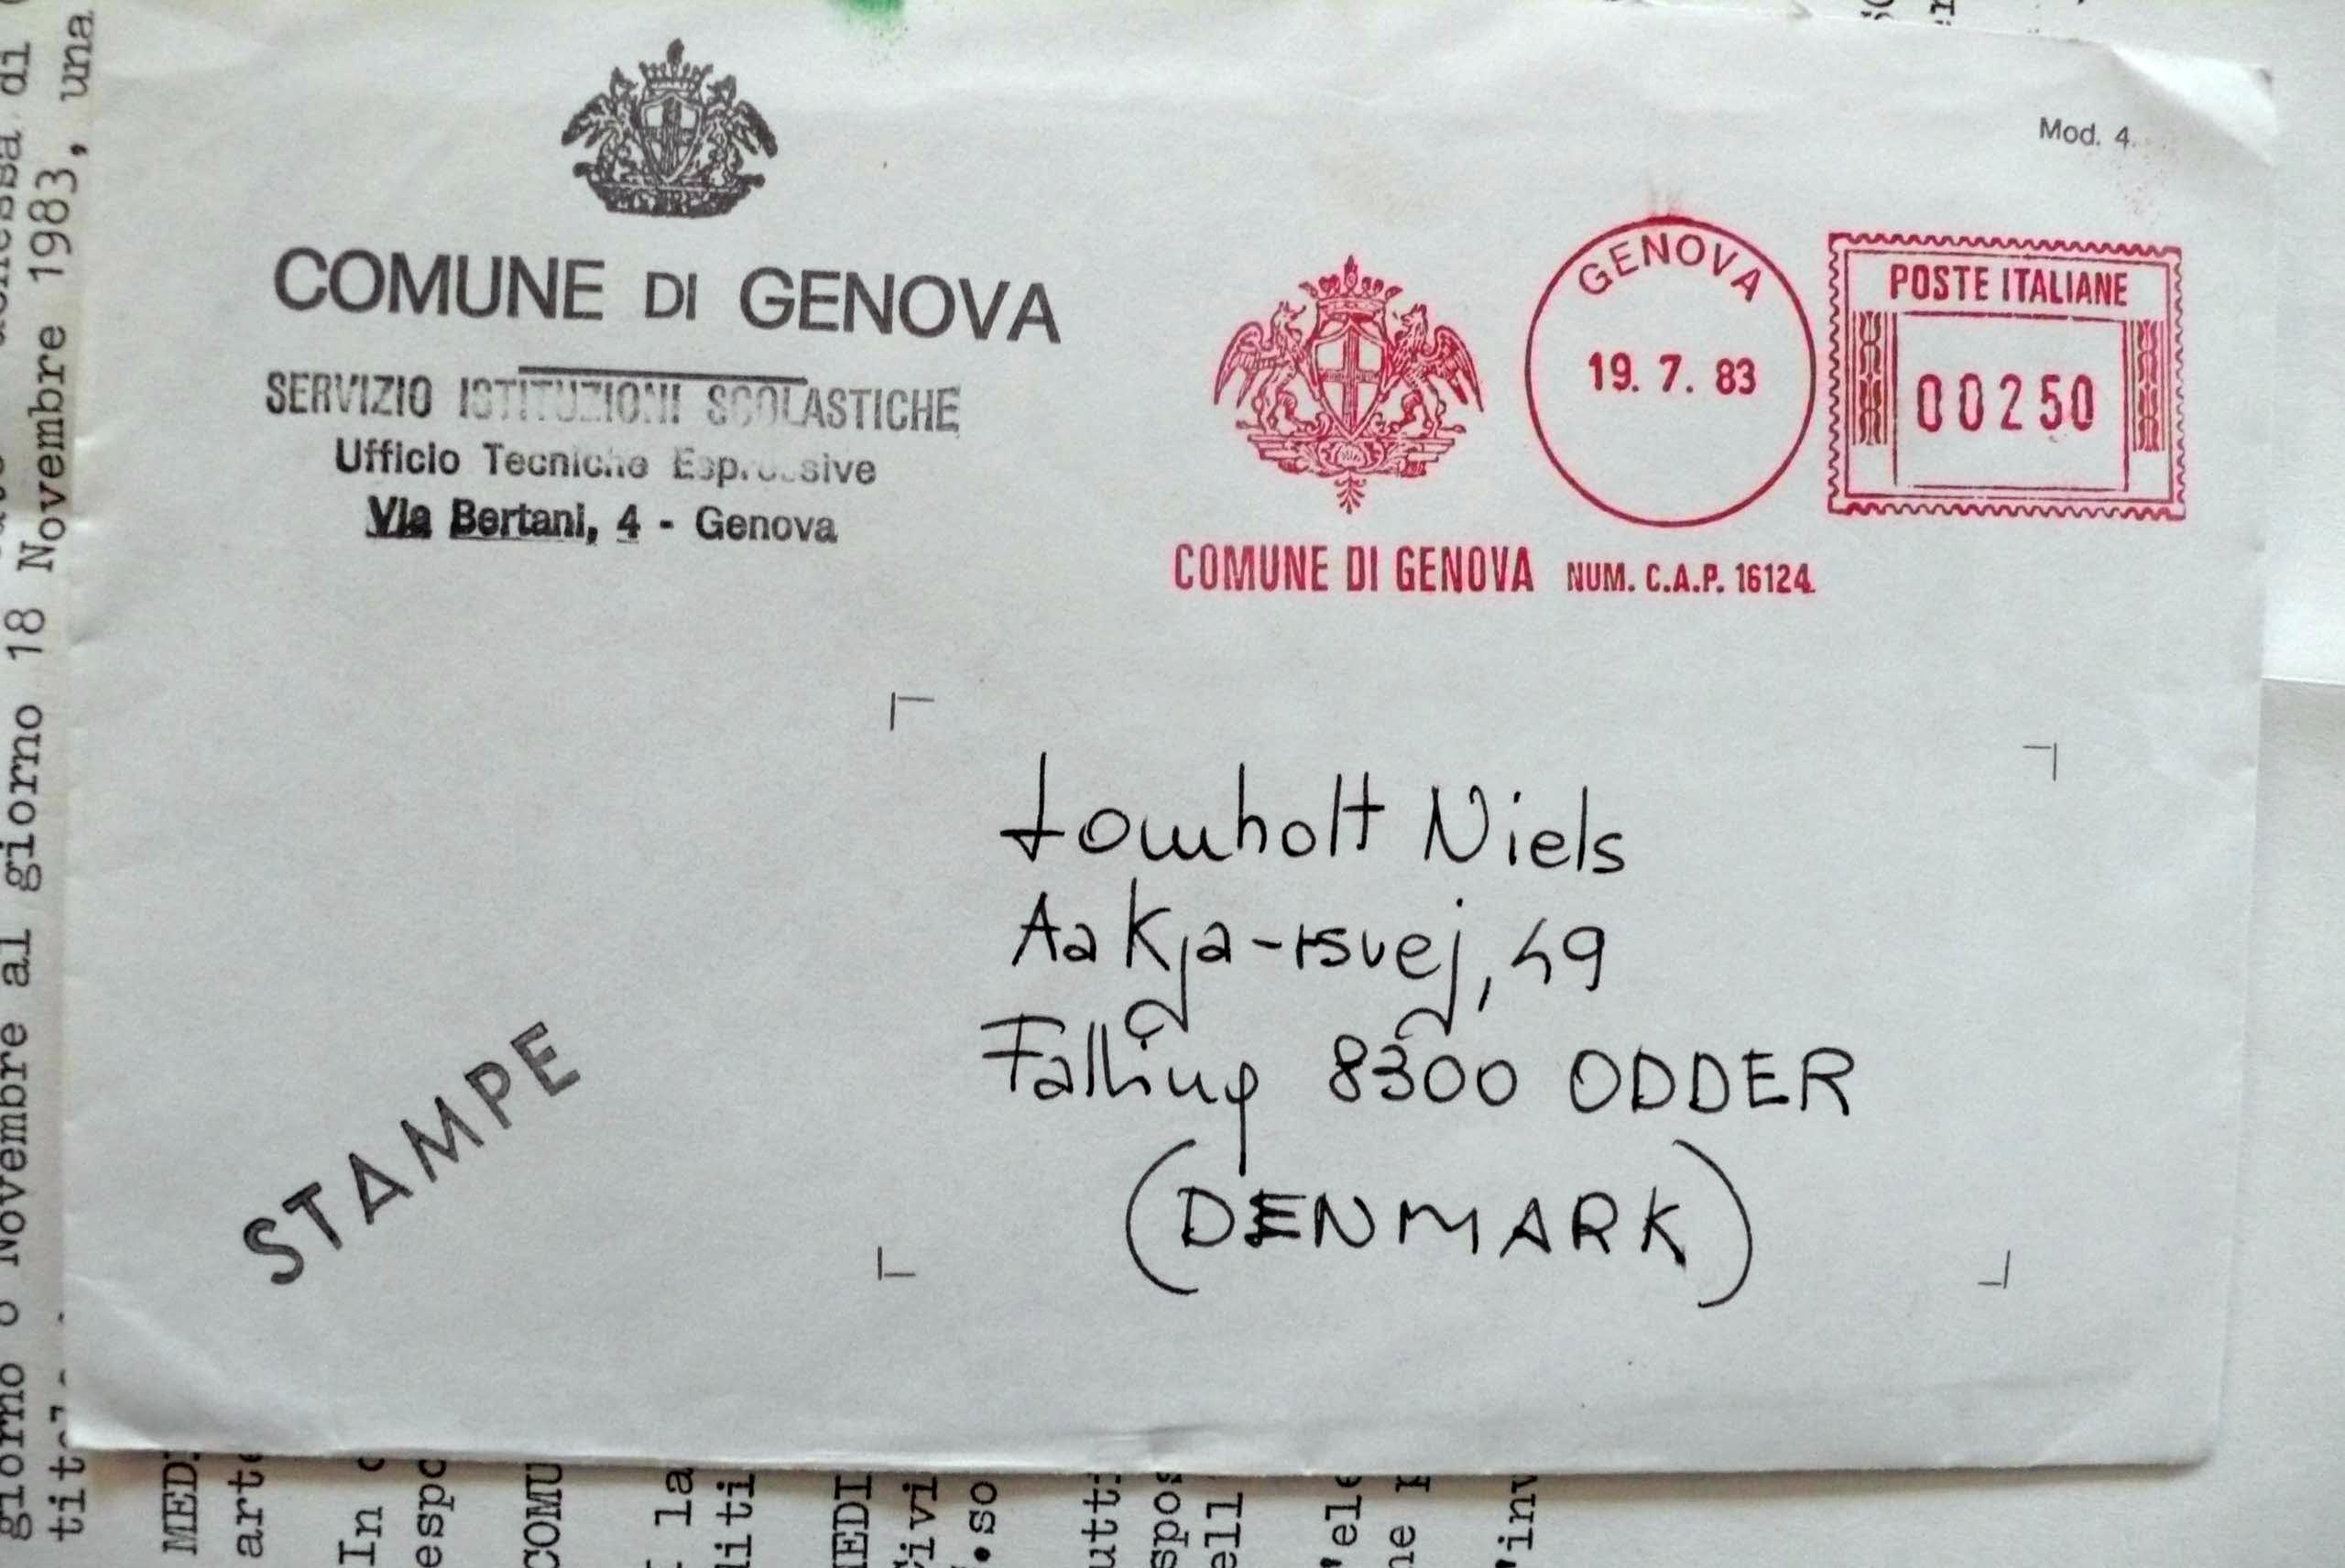 Mod. 4.
COMUNE DI GENOVA
SERVIZIO ISTITUZIONI SCOLASTICHE
Ufficio Tecniche Espressive
Via Bertani, 4 - Genova
GENOVA
19. 7. 83
POSTE ITALIANE
00250
COMUNE DI GENOVA NUM. C.A.P. 16124
Lomholt Niels
Aakja-rsvej, 49
Falling 8300 ODDER
(DENMARK)
STAMPE
di
18 Novembre 1983, una
giorno 8 Novembre al giorno
MED
arte
In
espo
COMU
la
diti
MEDI
Civi
.so
utti
spos
ell
'ele
ne p
'inv